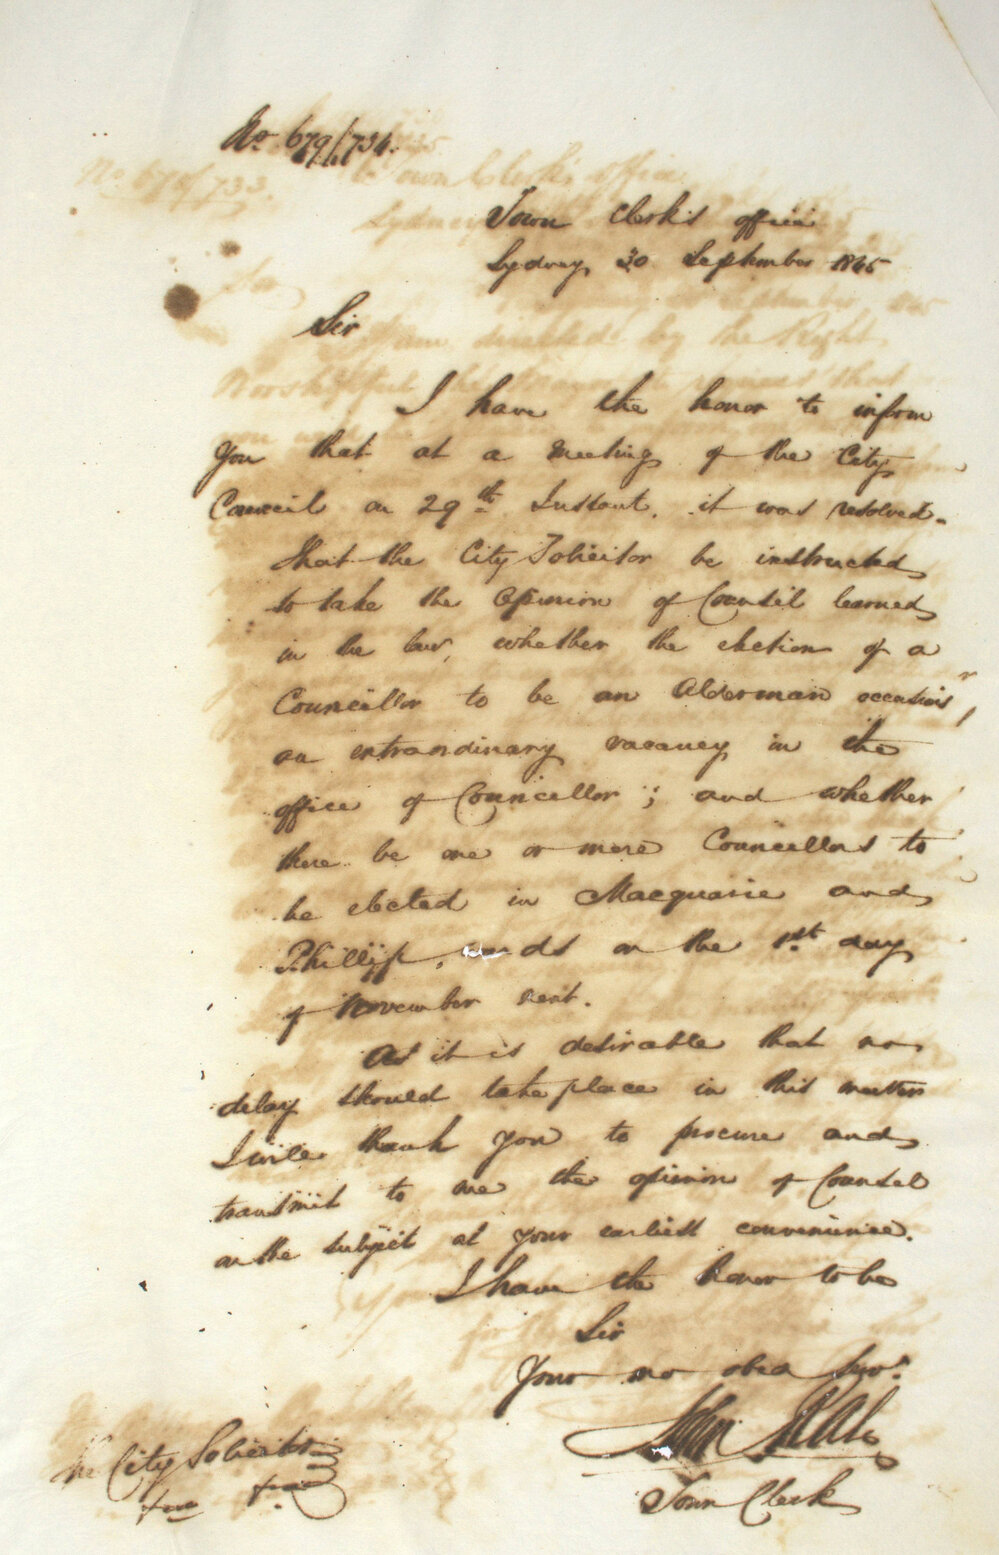 No. 679/734.
Town Clerk's office
Sydney, 30 September 1845
Sir
I have the honor to inform
you that at a meeting of the City
Council on 29th Instant, it was resolved-
that the City Solicitor be instructed
to take the Opinion of Counsel learned
in the law, whether the election of a
Councillor to be an Alderman occasions
an extraordinary vacancy in the
office of Councellor; and whether
there be one or more Councellors to
be elected in Macquarie and
Phillip, wards on the 1st day
of November next.
As it is desirable that no
delay should take place in this matter
I will thank you to procure and
transmit to me the opinion of Counsel
on the subject at your earliest convenience.
I have the honor to be
Sir
Your mo obed Servt.
Town Clerk
The City Solicitor